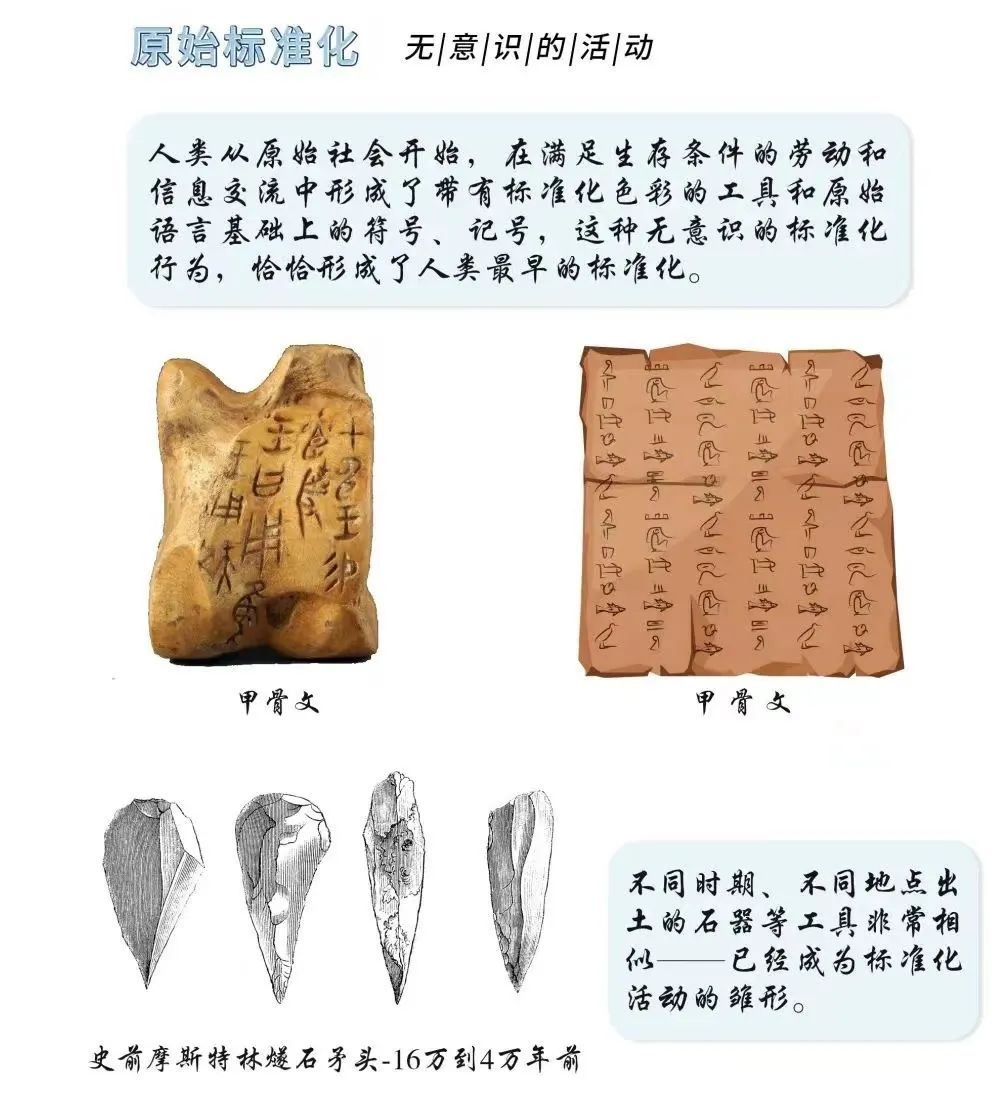 原始标准化 无|意|识|的|活|动
人类从原始社会开始，在满足生存条件的劳动和
信息交流中形成了带有标准化色彩的工具和原始
语言基础上的符号、记号，这种无意识的标准化
行为，恰恰形成了人类最早的标准化。
甲骨文
甲骨文
不同时期、不同地点出
土的石器等工具非常相
似——已经成为标准化
活动的雏形。
史前摩斯特林燧石矛头-16万到4万年前